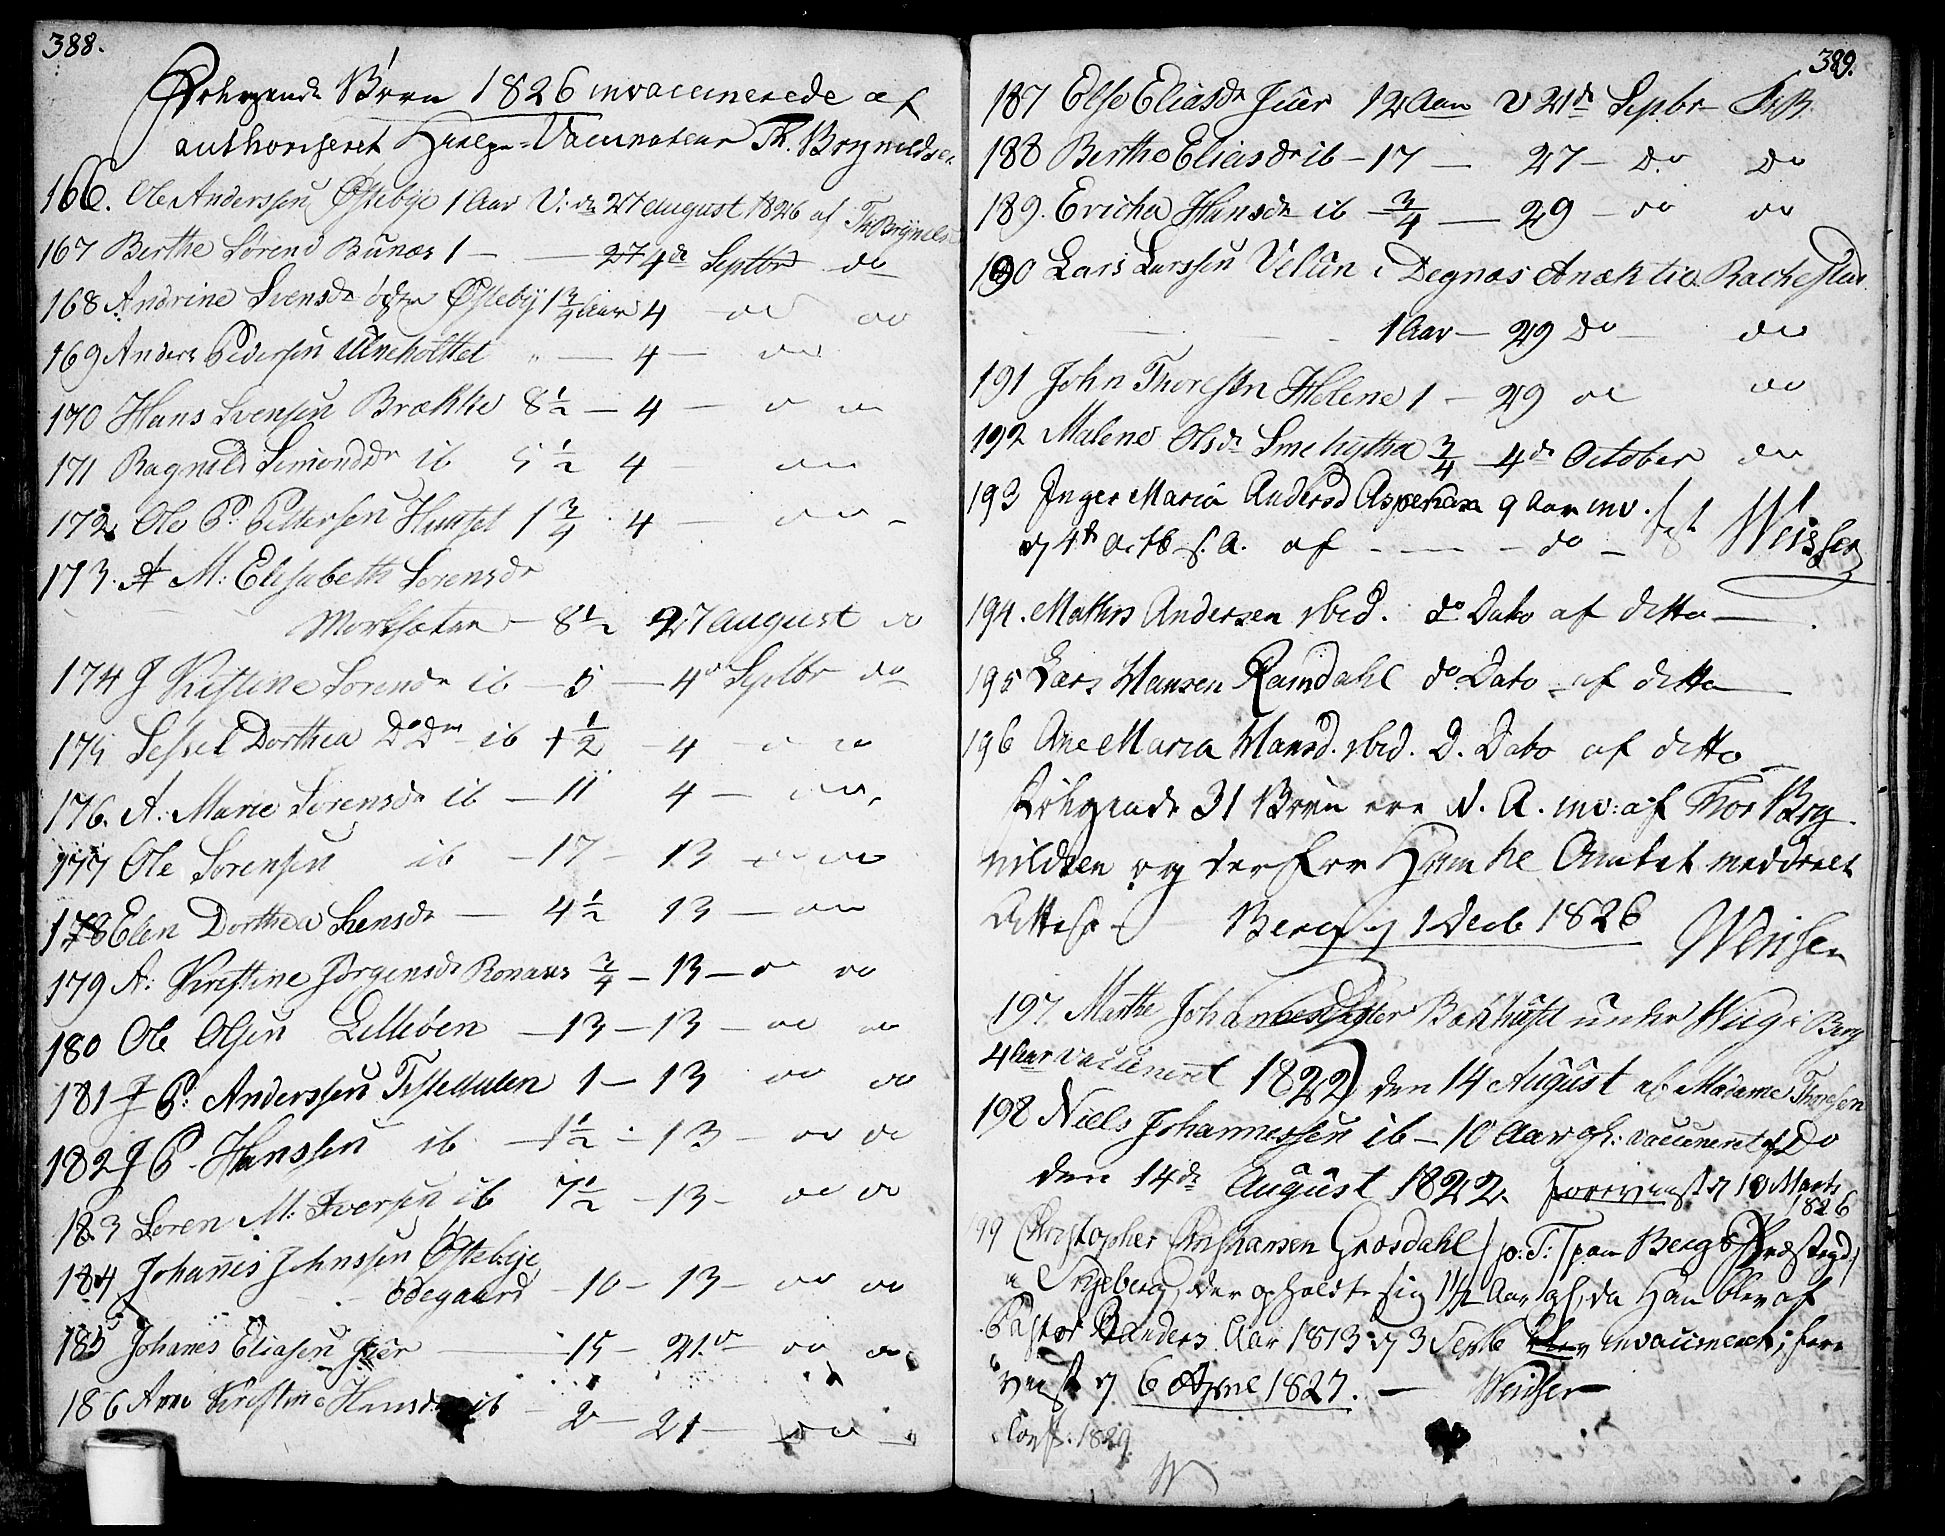 388.
Følgende Børn 1826 invaccinerede af
authoriseret Hielpe-Vaccinateur Th. Brynildsen
166. Ole Anderssen Østebye 1 Aar V: d 27 august 1826 af Th Brynilds
167 Berthe Sørensd Bunæs 1 — — 4de Septbr do
168 Andrine Svensdr ødegr Østeby 1 3/4 Aar 4 — do do
169 Anders Pedersen Ulneholttet " — 4 — do
170 Hans Svensen Brække 8 1/2 — 4 — do
171 Ragnild Simonsdr ib 5 1/2 4 — do
172. Ole P. Pettersen Huuset 1 3/4 . 4 — do —
173. A M: Elisabeth Sørensdr
Morksæter — 8 1/2 27 August do
174 J Kristine Sørensdr ib — 5 — 4de Septbr do
175 Sissel Dorthea Do Dr ib 1 1/2 — 4 — do
176. A. Marie Sørensdr ib — 11 4 — do,
177 Ole Sørensen ib — 17 — 13 — do
178 Elen Dorthea Svensdr — 4 1/2 13 — do
179 A: Kirstine Jørgensdr Ronæs 3/4 — 13 — do do
180 Ole Olsen Lilleøen — 13 — 13 — do do
181 J P: Anderssen Tistedalen 1 — 13 do do
182 J P. Hanssen ib — 1 1/2 — 13 — do do
183 Søren M: Iversen ib 7 1/2 — 13 — do do
184 Johannis Johnssen Østebye
ødegaard — 10 — 13 — do do
185 Johanes Eliasen Juer — 15 — 21de do do
186 Ane Kirstine Hansdr ib — 2 — 21 — do —
389.
187 Else Eliasdr Juer 12 Aar v 21de Sepbr — ThB.
188 Berthe Eliasdr ib — 17 — 27 — do do
189. Ericha Hansdr ib — 3/4 — 29 — do do
190 Lars Larssen Velun i Degnæs Anæktie Rachestad
1 Aar — 29 do — do
191 John Thoresen Helene 1 — 29 do do
192 Malene Olsdr Smehytha 3/4 — 4de October do
193 Inger Maria Andersd Aspehau 9 Aar inv.
d 4de Octb s. A. af — — — do — Weisser
194. Mathis Andersen ibid. do Dato af ditto —
195 Lars Hansen Ramdahl do Dato af ditto —
196 Ane Maria Hansd. ibid. D. Dato af ditto —
Følgende 31 Børn ere d. A. inv: af Thor Bry-
nildsen og derfor Amtet meddeelt
Attest — Berg d 1 Decb 1826 Weisser
197. Matthe Johannesdatter Bækhuset under Wiig i Berg
4 Aar vaccineret 1822) den 14 August af Madame Thoresen
198 Niels Johannessen ib — 10 Aar gl: vaccineret af Do
den 14de August 1822. foreviist d 10 Marts
1826
199 Christopher Christiansen Grøsdahl / p: T: / paa Bergs Præstegd /
i Ingeberg, der opholdt sig 1 1/2 Aar gl, da Han blev af
Pastor Randers Aar 1813 d 3 Septb blev invaccineret; fore
viist d 6 April 1827. — Weisser
Conf: 1829
W